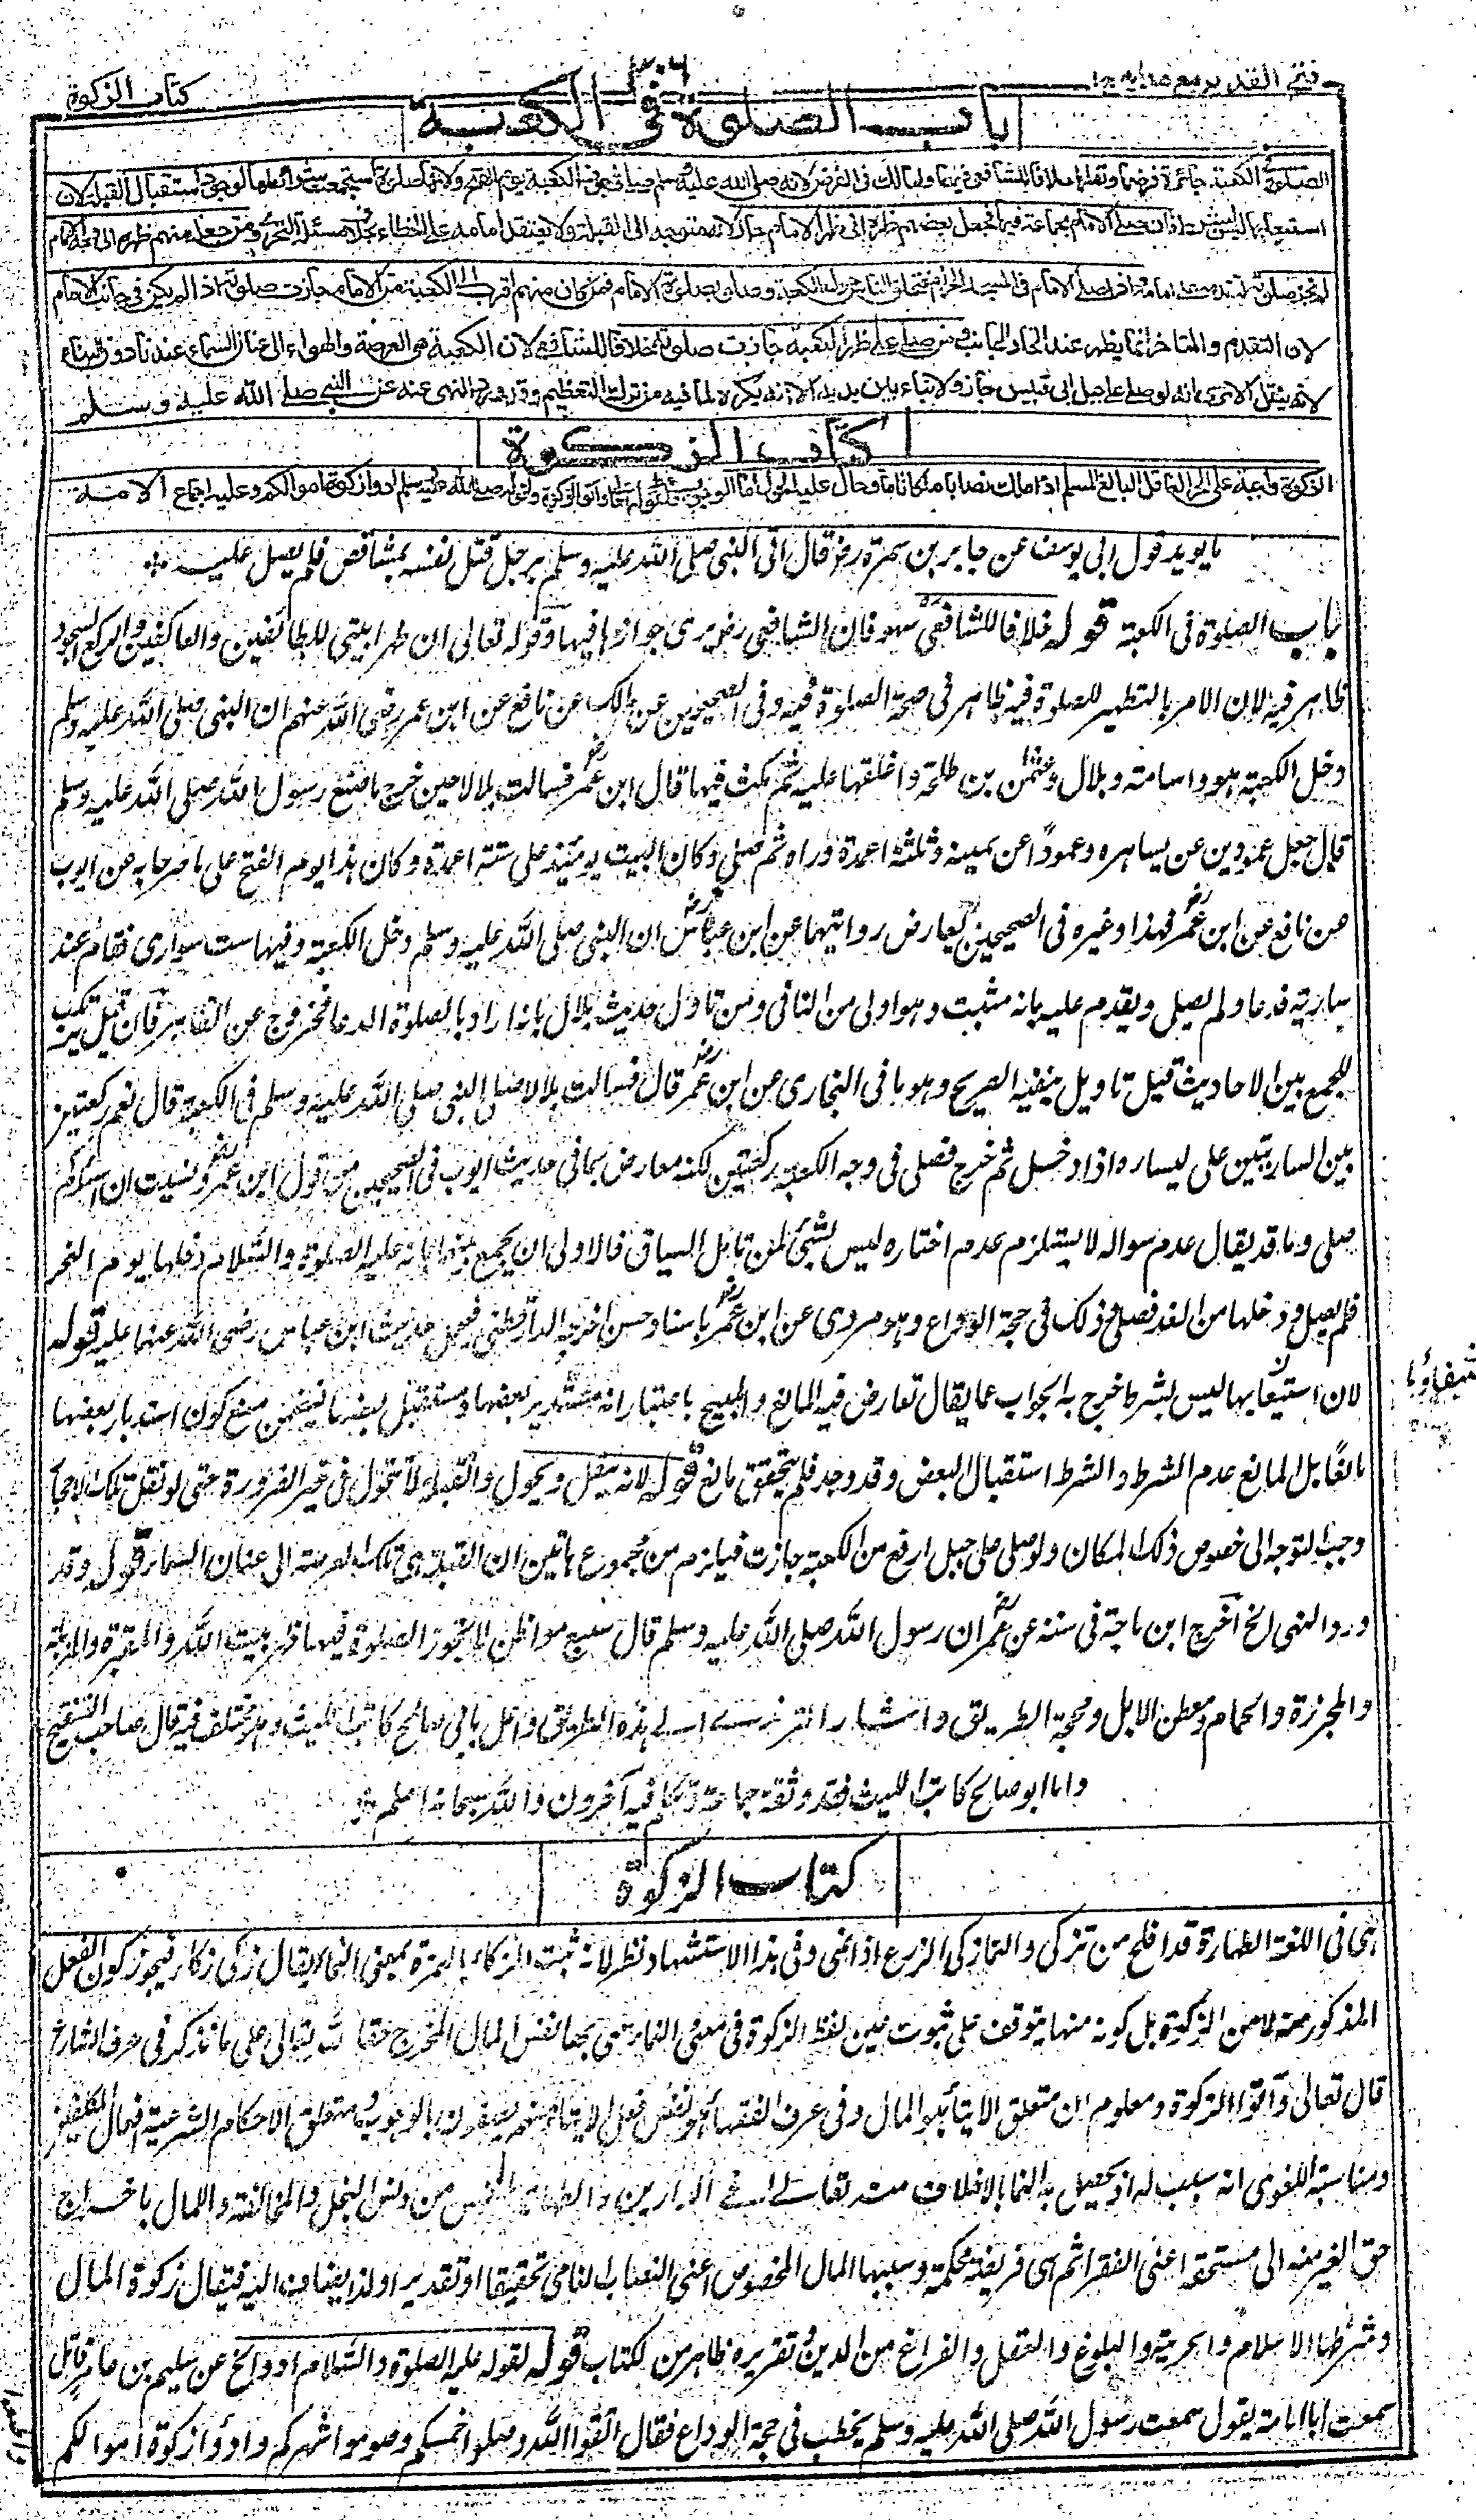 فتح القدیر مع هدایه ج۱
کتاب الزکوة
باب الصلوة فی الکعبة
الصلوة فی الکعبة جائزة فرضها ونفلها خلافا للشافعی فیهما ولمالک فی الفرض لانه صلی الله علیه وسلم صلی فی جوف الکعبة یوم الفتح ولانها صلوة استجمعت شرائطها لوجود استقبال القبلة لان
استیعابها لیس بشرط فان صلی الامام بجماعة فیها فجعل بعضهم ظهره الی ظهر الامام جاز لانه متوجه الی القبلة ولا یعتقد امامه علی الخطاء بخلاف مسئلة التحری ومن جعل منهم ظهره الی وجه الامام
لم تجز صلوته لتقدمه علی امامه واذا صلی الامام فی المسجد الحرام فتحلق الناس حول الکعبة وصلوا بصلوة الامام فمن کان منهم اقرب الی الکعبة من الامام جازت صلوته اذا لم یکن فی جانب الامام
لان التقدم والتاخر انما یظهر عند اتحاد الجانب ومن صلی علی ظهر الکعبة جازت صلوته خلافا للشافعی لان الکعبة هی العرصة والهواء الی عنان السماء عندنا دون البناء
لانه ینقل الا تری انه لو صلی علی جبل ابی قبیس جاز ولا بناء بین یدیه الا انه یکره لما فیه من ترک التعظیم وقد ورد النهی عنه عن النبی صلی الله علیه وسلم
کتاب الزکوة
الزکوة واجبة علی الحر العاقل البالغ المسلم اذا ملک نصابا ملکا تاما وحال علیه الحول اما الوجوب فلقوله تعالی واتوا الزکوة ولقوله صلی الله علیه وسلم ادوا زکوة اموالکم وعلیه اجماع الامة
ما یوید قول ابی یوسف عن جابر بن سمرة رض قال اتی النبی صلی الله علیه وسلم برجل قتل نفسه بمشاقص فلم یصل علیه
باب الصلوة فی الکعبة قوله خلافا للشافعی سهو فان الشافعی رض یری جوازها فیها وقوله تعالی ان طهرا بیتی للطائفین والعاکفین والرکع السجود
ظاهر فیه لان الامر بالتطهیر للصلوة فیه ظاهر فی صحة الصلوة فیه وفی الصحیحین عن مالک عن نافع عن ابن عمر رضی الله عنهم ان النبی صلی الله علیه وسلم
دخل الکعبة هو واسامة وبلال وعثمن بن طلحة واغلقها علیه ثم مکث فیها قال ابن عمر رض فسالت بلالا حین خرج ما صنع رسول الله صلی الله علیه وسلم
قال جعل عمودین عن یساره وعمودا عن یمینه وثلثة اعمدة وراه ثم صلی وکان البیت یومئذ علی ستة اعمدة وکان هذا یوم الفتح علی ما صرحا به عن ایوب
عن نافع عن ابن عمر رض فهذا وغیره فی الصحیحین یعارض روایتهما عن ابن عباس رض ان النبی صلی الله علیه وسلم دخل الکعبة وفیها ست سواری فقام عند
ساریة فدعا ولم یصل ویقدم علیه بانه مثبت وهو اولی من النافی ومن تاول حدیث بلال بانه اراد بالصلوة الدعا فخروج عن الظاهر فان قیل یرتکب
للجمع بین الاحادیث قیل تاویل ینفیه الصریح وهو ما فی البخاری عن ابن عمر رض قال فسالت بلالا صلی النبی صلی الله علیه وسلم فی الکعبة قال نعم رکعتین
بین الساریتین علی یساره اذا دخل ثم خرج فصلی فی وجه الکعبة رکعتین لکنه معارض بما فی حدیث ایوب فی الصحیحین من قول ابن عمر رض ونسیت ان اسئله کم
صلی وما قد یقال عدم سواله لا یستلزم عدم اخباره لیس بشئ لمن تامل السیاق فالاولی ان یجمع بینهما بانه علیه الصلوة والسلام دخلها یوم النحر
فلم یصل ودخلها من الغد فصلی وذلک فی حجة الوداع وهو مروی عن ابن عمر رض باسناد حسن اخرجه الدارقطنی فیحمل حدیث ابن عباس رضی الله عنهما علیه قوله
لان استیعابها لیس بشرط خرج به الجواب عما یقال تعارض فیه المانع والمبیح باعتبار انه مستدبر بعضها ومستقبل بعضها فتضمن منع کون استدبار بعضها
مانعا بل المانع عدم الشرط والشرط استقبال البعض وقد وجد فلم یتحقق مانع قوله لانه ینقل ویحول والقبلة لا تتحول فی غیر الضرورة حتی لو نقل تلک الاحجار
وجب التوجه الی خصوص ذلک المکان ولو صلی علی جبل ارفع من الکعبة جازت فیلزم من مجموع هاتین ان القبلة هی تلک العرصة الی عنان السماء قوله وقد
ورد النهی الخ اخرج ابن ماجة فی سننه عن عمر رض ان رسول الله صلی الله علیه وسلم قال سبع مواطن لا تجوز الصلوة فیها ظهر بیت الله والمقبرة والمزبلة
والمجزرة والحمام ومعطن الابل ومحجة الطریق واشار الترمذی الی هذه الطریق واعل بابی صالح کاتب اللیث وهو مختلف فیه قال صاحب التنقیح
واما ابو صالح کاتب اللیث فقد وثقه جماعة وتکلم فیه آخرون والله سبحانه اعلم
کتاب الزکوة
هی فی اللغة الطهارة قد افلح من تزکی والنما زکی الزرع اذا نمی وفی هذا الاستشهاد نظر لانه ثبت الزکاء بالهمزة بمعنی النما یقال زکی زکاء فیجوز کون الفعل
المذکور منه لا من الزکوة بل کونه منها یتوقف علی ثبوت عین لفظ الزکوة فی معنی النما ثم سمی بها نفس المال المخرج حقا لله تعالی علی ما نذکر فی عرف الشارع
قال تعالی وآتوا الزکوة ومعلوم ان متعلق الایتاء هو المال وفی عرف الفقهاء هو نفس فعل الایتاء لانهم یصفونه بالوجوب ومتعلق الاحکام الشرعیة افعال المکلفین
ومناسبة اللغوی انه سبب له اذ یحصل به النما بالاخلاف منه تعالی فی الدارین والطهارة للنفس من دنس البخل والمخالفة وللمال باخراج
حق الغیر منه الی مستحقه اعنی الفقراء ثم هی فریضة محکمة وسببها المال المخصوص اعنی النصاب النامی تحقیقا او تقدیرا ولذا یضاف الیه فیقال زکوة المال
وشرطها الاسلام والحریة والبلوغ والعقل والفراغ من الدین وتقریره ظاهر من الکتاب قوله لقوله علیه الصلوة والسلام ادوا الخ عن سلیم بن عامر قال
سمعت ابا امامة یقول سمعت رسول الله صلی الله علیه وسلم یخطب فی حجة الوداع فقال اتقوا الله وصلوا خمسکم وصوموا شهرکم وادوا زکوة اموالکم